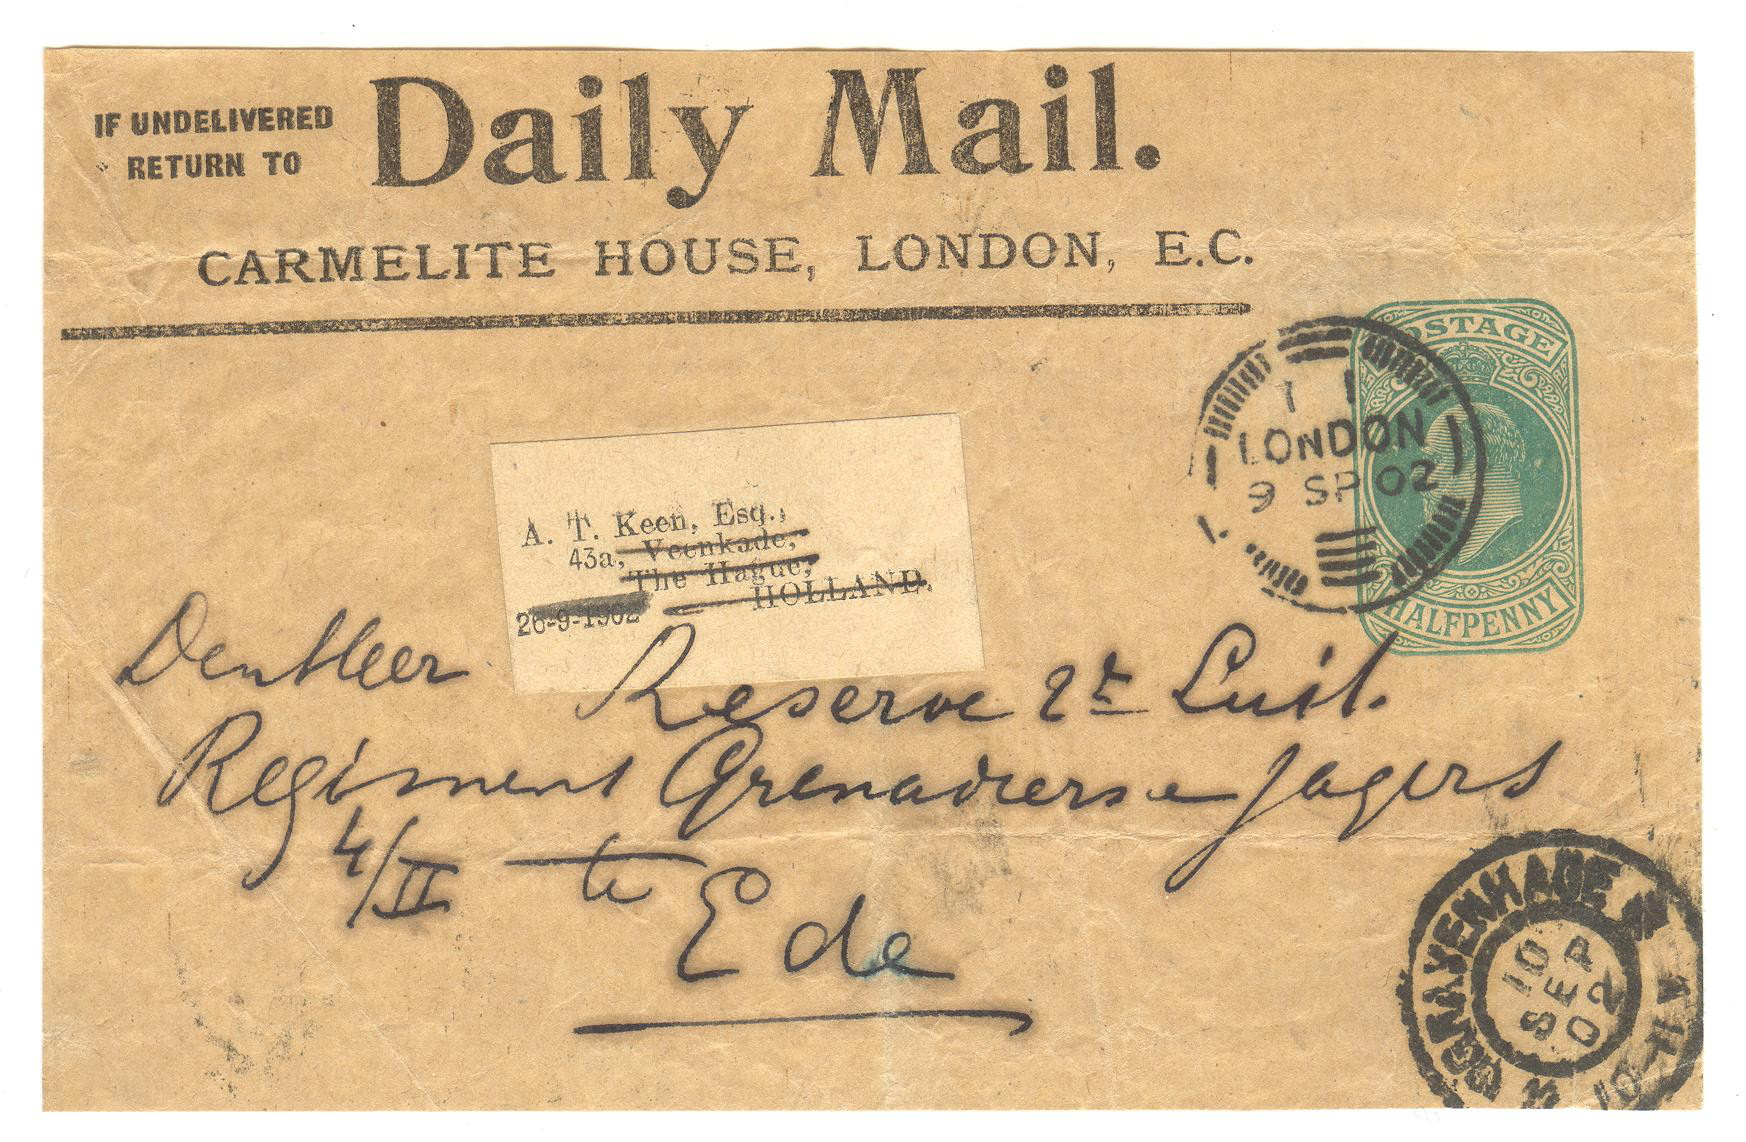 IF UNDELIVERED
RETURN TO
Daily Mail.
CARMELITE HOUSE, LONDON, E.C.
POSTAGE
HALFPENNY
1 1
LONDON
9 SP 02
A. T. Keen, Esq.,
43a, Veenkade,
The Hague,
HOLLAND.
26-9-1902
Den Heer Reserve 2e Luit.
Regiment Grenadiers e Jagers
4/II te
Ede
'S GRAVENHAGE
10 SEP 02
10-11